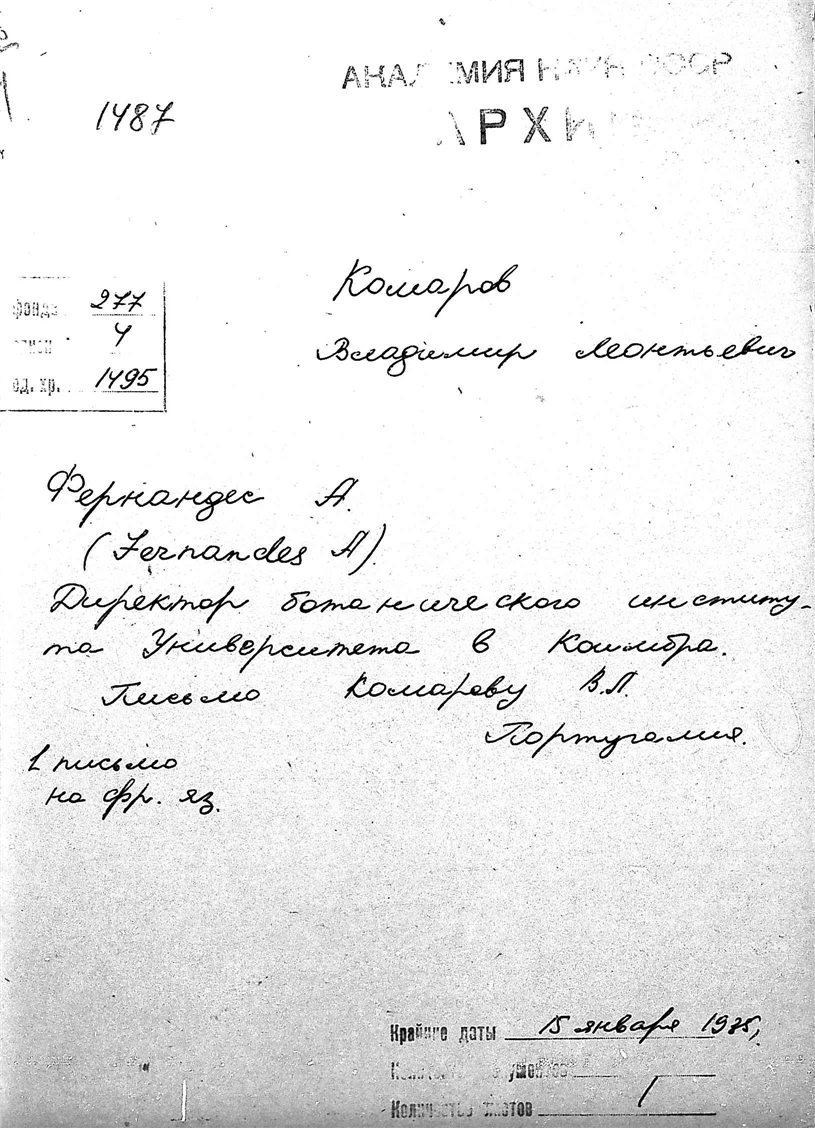 1487
АКАДЕМИЯ НАУК СССР
АРХИВ
фонда 277
описи 4
ед. хр. 1495
Комаров
Владимир Леонтьевич
Фернандес А.
(Fernandes A).
Директор ботанического институ-
та Университета в Коимбра.
Письмо Комарову В.Л.
Португалия.
1 письмо
на фр. яз.
Крайние даты 15 января
Количество документов
Количество листов 1